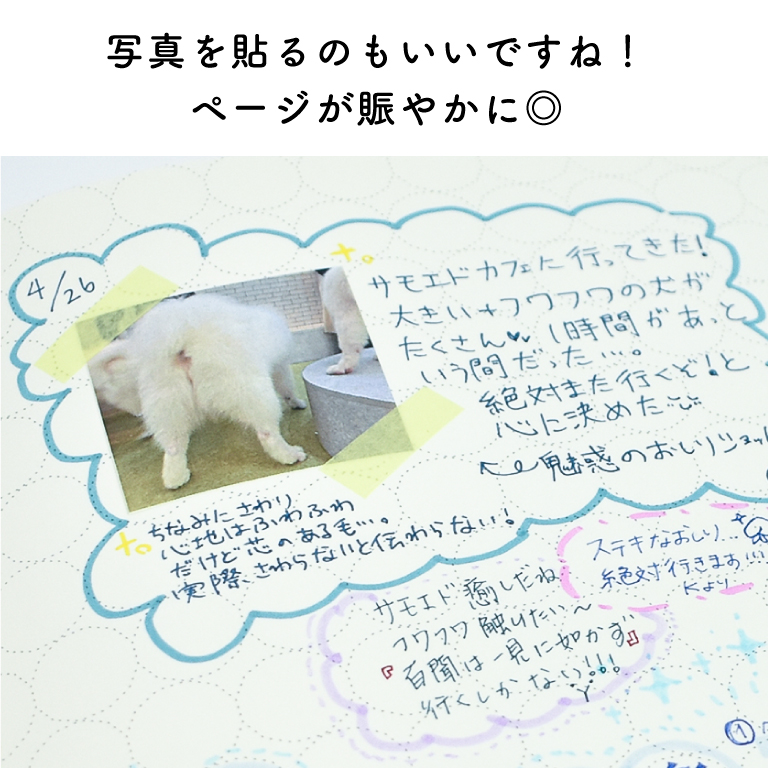 写真を貼るのもいいですね！
ページが賑やかに◎
4/26
サモエドカフェに行ってきた!
大きい+フワフワの犬が
たくさん♥ 1時間があっと
いう間だった…。
絶対また行くぞ!と
心に決めた
魅惑のおしりショット
ちなみにさわり
心地はふわふわ
だけど芯のある毛…。
実際、さわらないと伝わらない!
ステキなおしり…
絶対行きます…
Kより
サモエド癒しだね
フワフワ触りたい〜
『百聞は一見に如かず』
行くしかない!!!
①